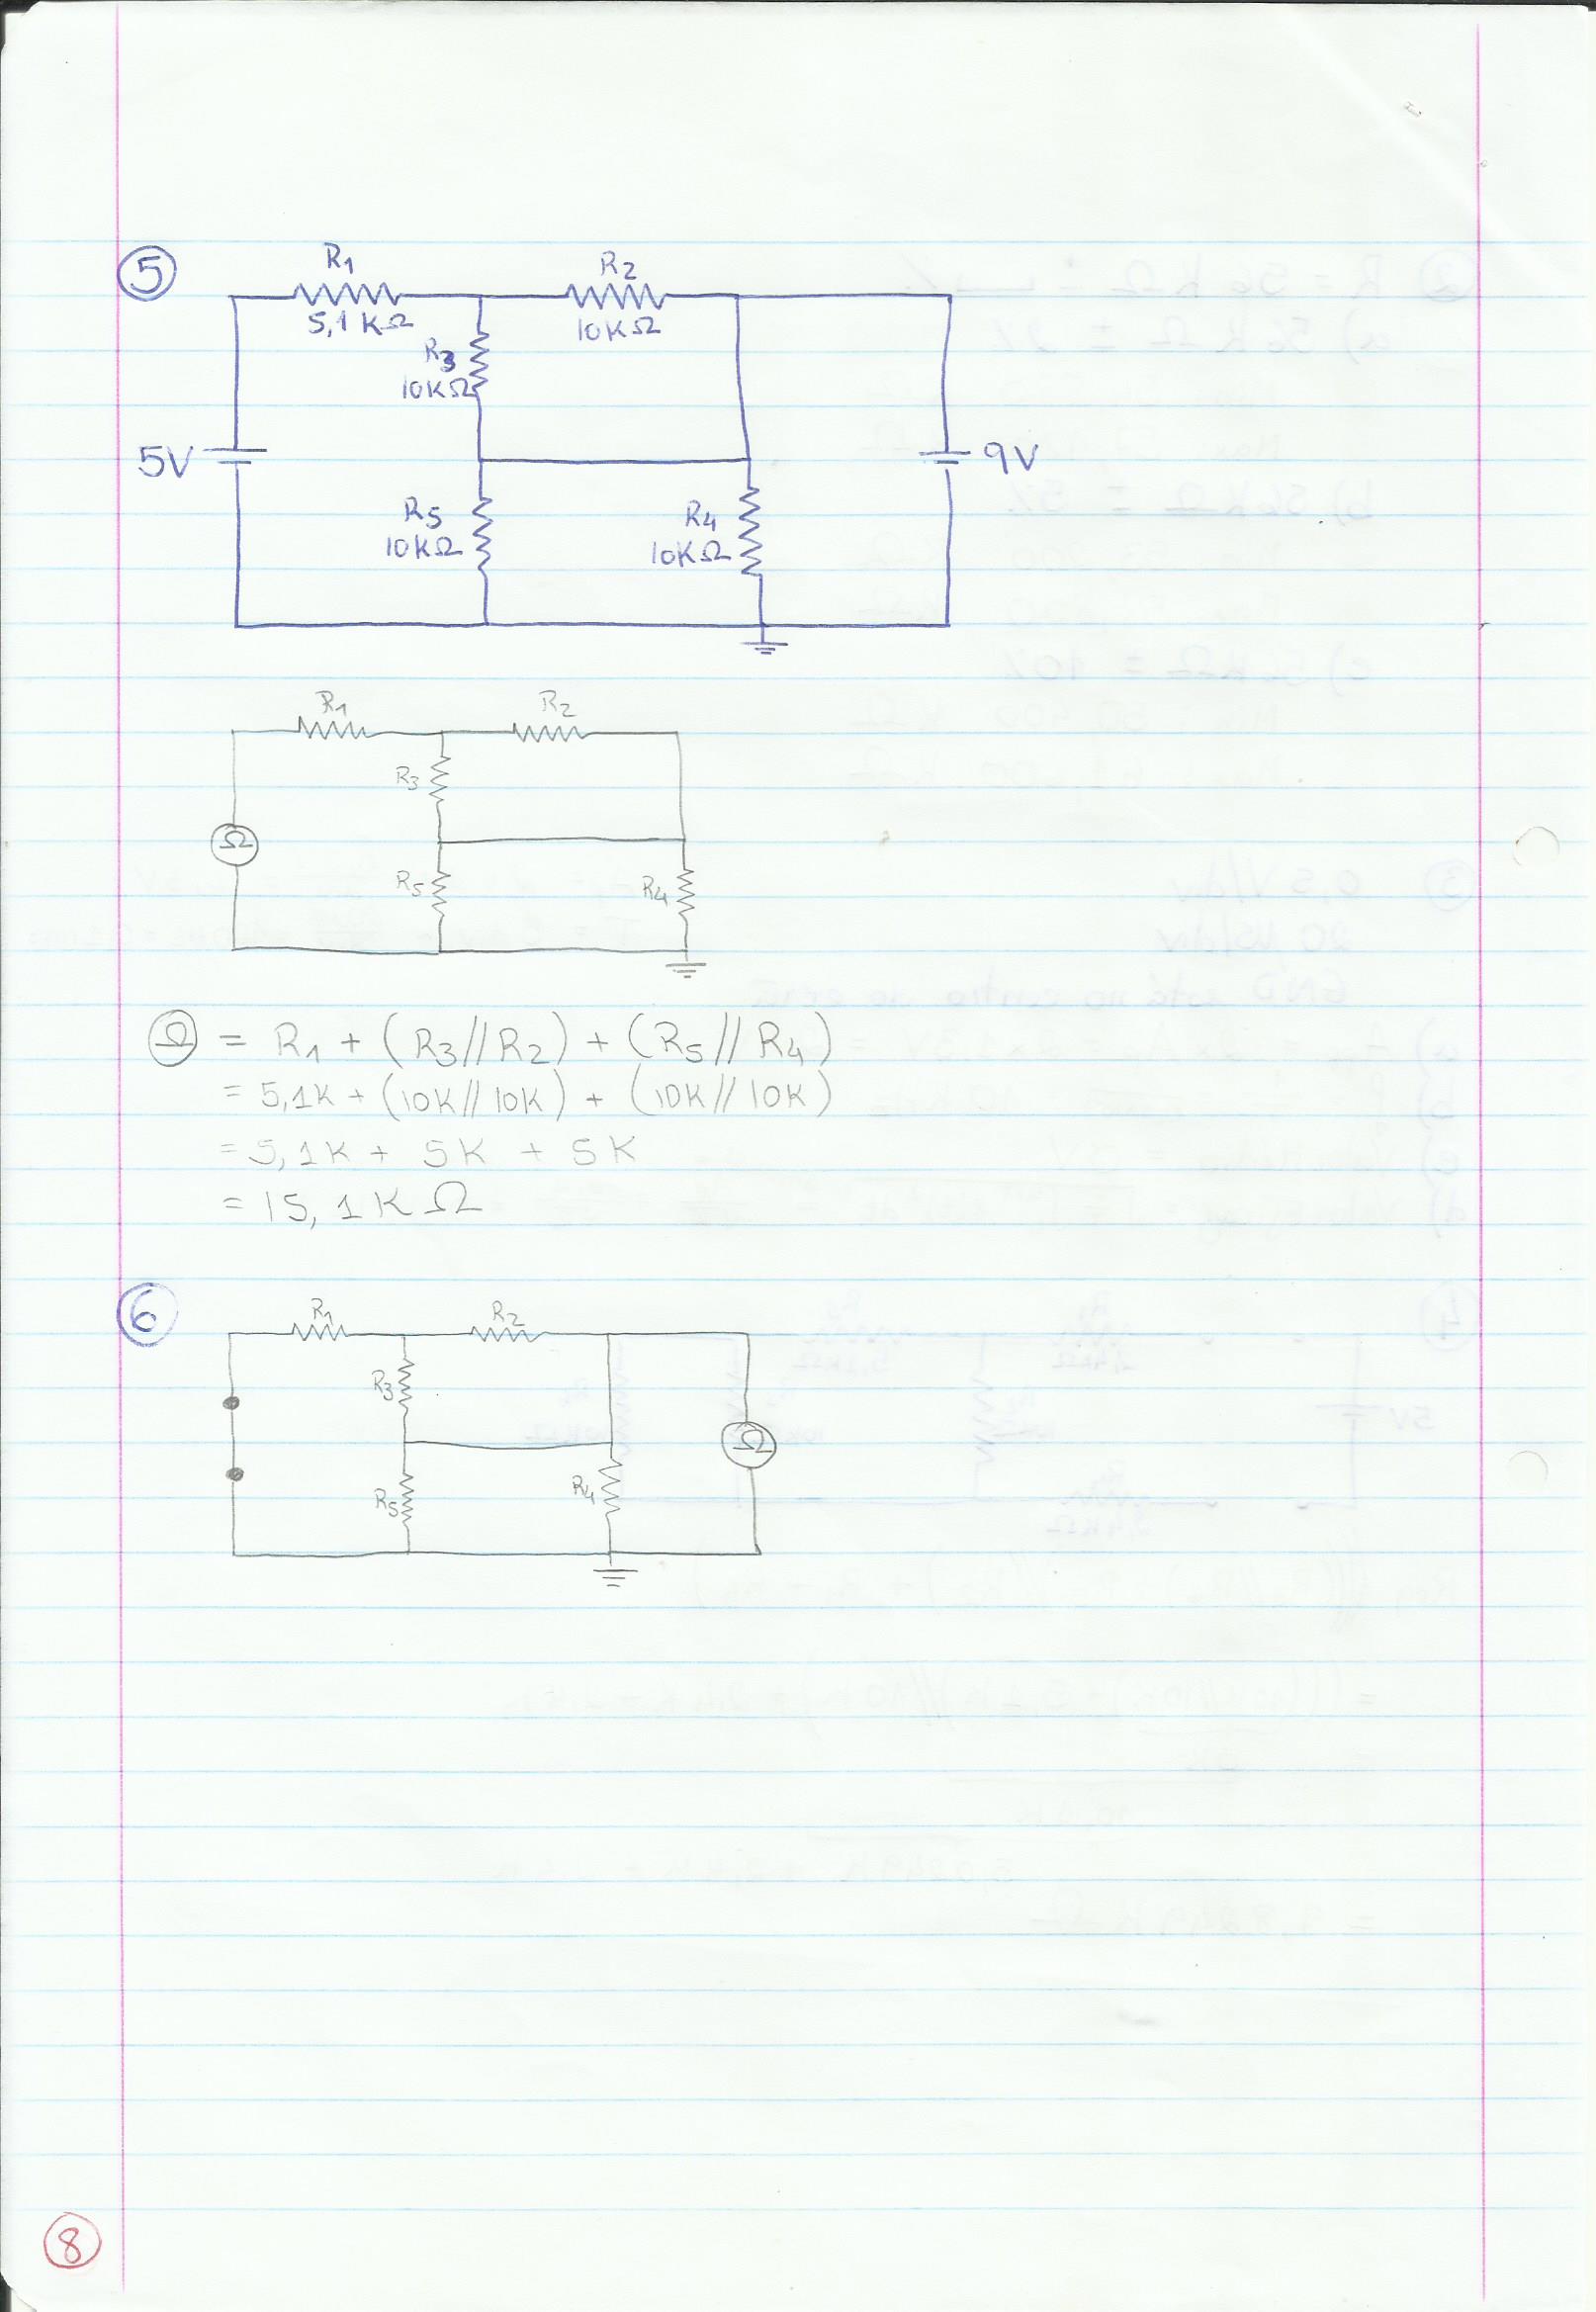 5
R1
R2
5,1KΩ
10KΩ
R3
10KΩ
5V
9V
R5
10KΩ
R4
10KΩ
R1
R2
R3
Ω
R5
R4
Ω = R1 + (R3//R2) + (R5//R4)
= 5,1K + (10K//10K) + (10K//10K)
= 5,1K + 5K + 5K
= 15,1KΩ
6
R1
R2
R3
Ω
R5
R4
8